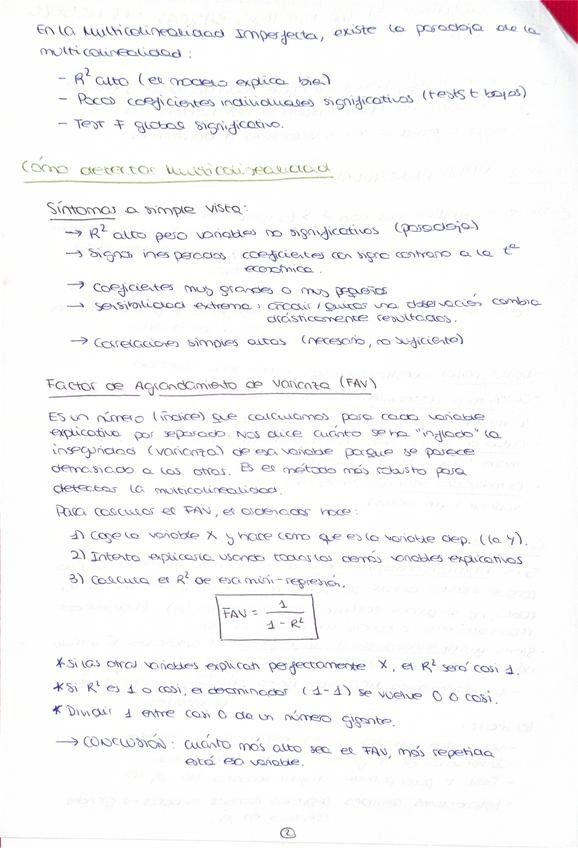 En la Multicolinealidad Imperfecta, existe la paradoja de la
multicolinealidad:
- R² alto (el modelo explica bien)
- Pocos coeficientes individuales significativos (tests t bajos)
- Test F global significativo.
Cómo detectar Multicolinealidad
Síntomas a simple vista:
→ R² alto pero variables no significativas (paradoja)
→ Signos inesperados: coeficientes con signo contrario a la tª
económica.
→ Coeficientes muy grandes o muy pequeños
→ Sensibilidad extrema: añadir/quitar una observación cambia
drásticamente resultados.
→ Correlaciones simples altas (necesario, no suficiente)
Factor de Agrandamiento de Varianza (FAV)
Es un número (índice) que calculamos para cada variable
explicativa por separado. Nos dice cuánto se ha "inflado" la
inseguridad (varianza) de esa variable porque se parece
demasiado a las otras. Es el método más robusto para
detectar la multicolinealidad.
Para calcular el FAV, el ordenador hace:
1) Coge la variable X y hace como que es la variable dep. (la Y).
2) Intenta explicarla usando todas las demás variables explicativas
3) Calcula el R² de esa mini-regresión.
FAV = 1 / 1 - R²
* Si las otras variables explican perfectamente X, el R² será casi 1.
* Si R² es 1 o casi, el denominador (1-1) se vuelve 0 o casi.
* Dividir 1 entre casi 0 da un número gigante.
→ CONCLUSIÓN: cuánto más alto sea el FAV, más repetida
está esa variable.
2